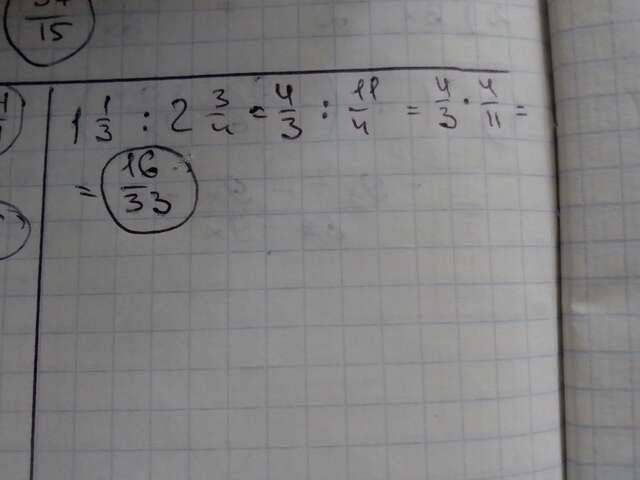 15
1 1/3 : 2 3/4 = 4/3 : 11/4 = 4/3 · 4/11 =
= 16/33